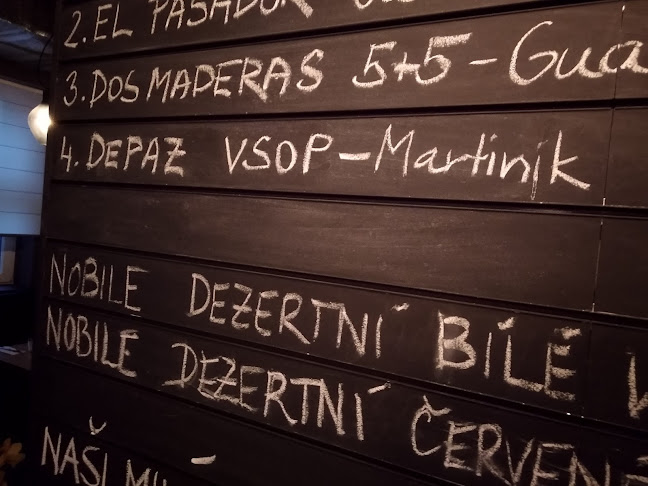 2. EL PASADOR
3. DOS MADERAS 5+5 - Gua
4. DEPAZ VSOP - Martinik
NOBILE DEZERTNÍ BÍLÉ
NOBILE DEZERTNÍ ČERVENÉ
NAŠI